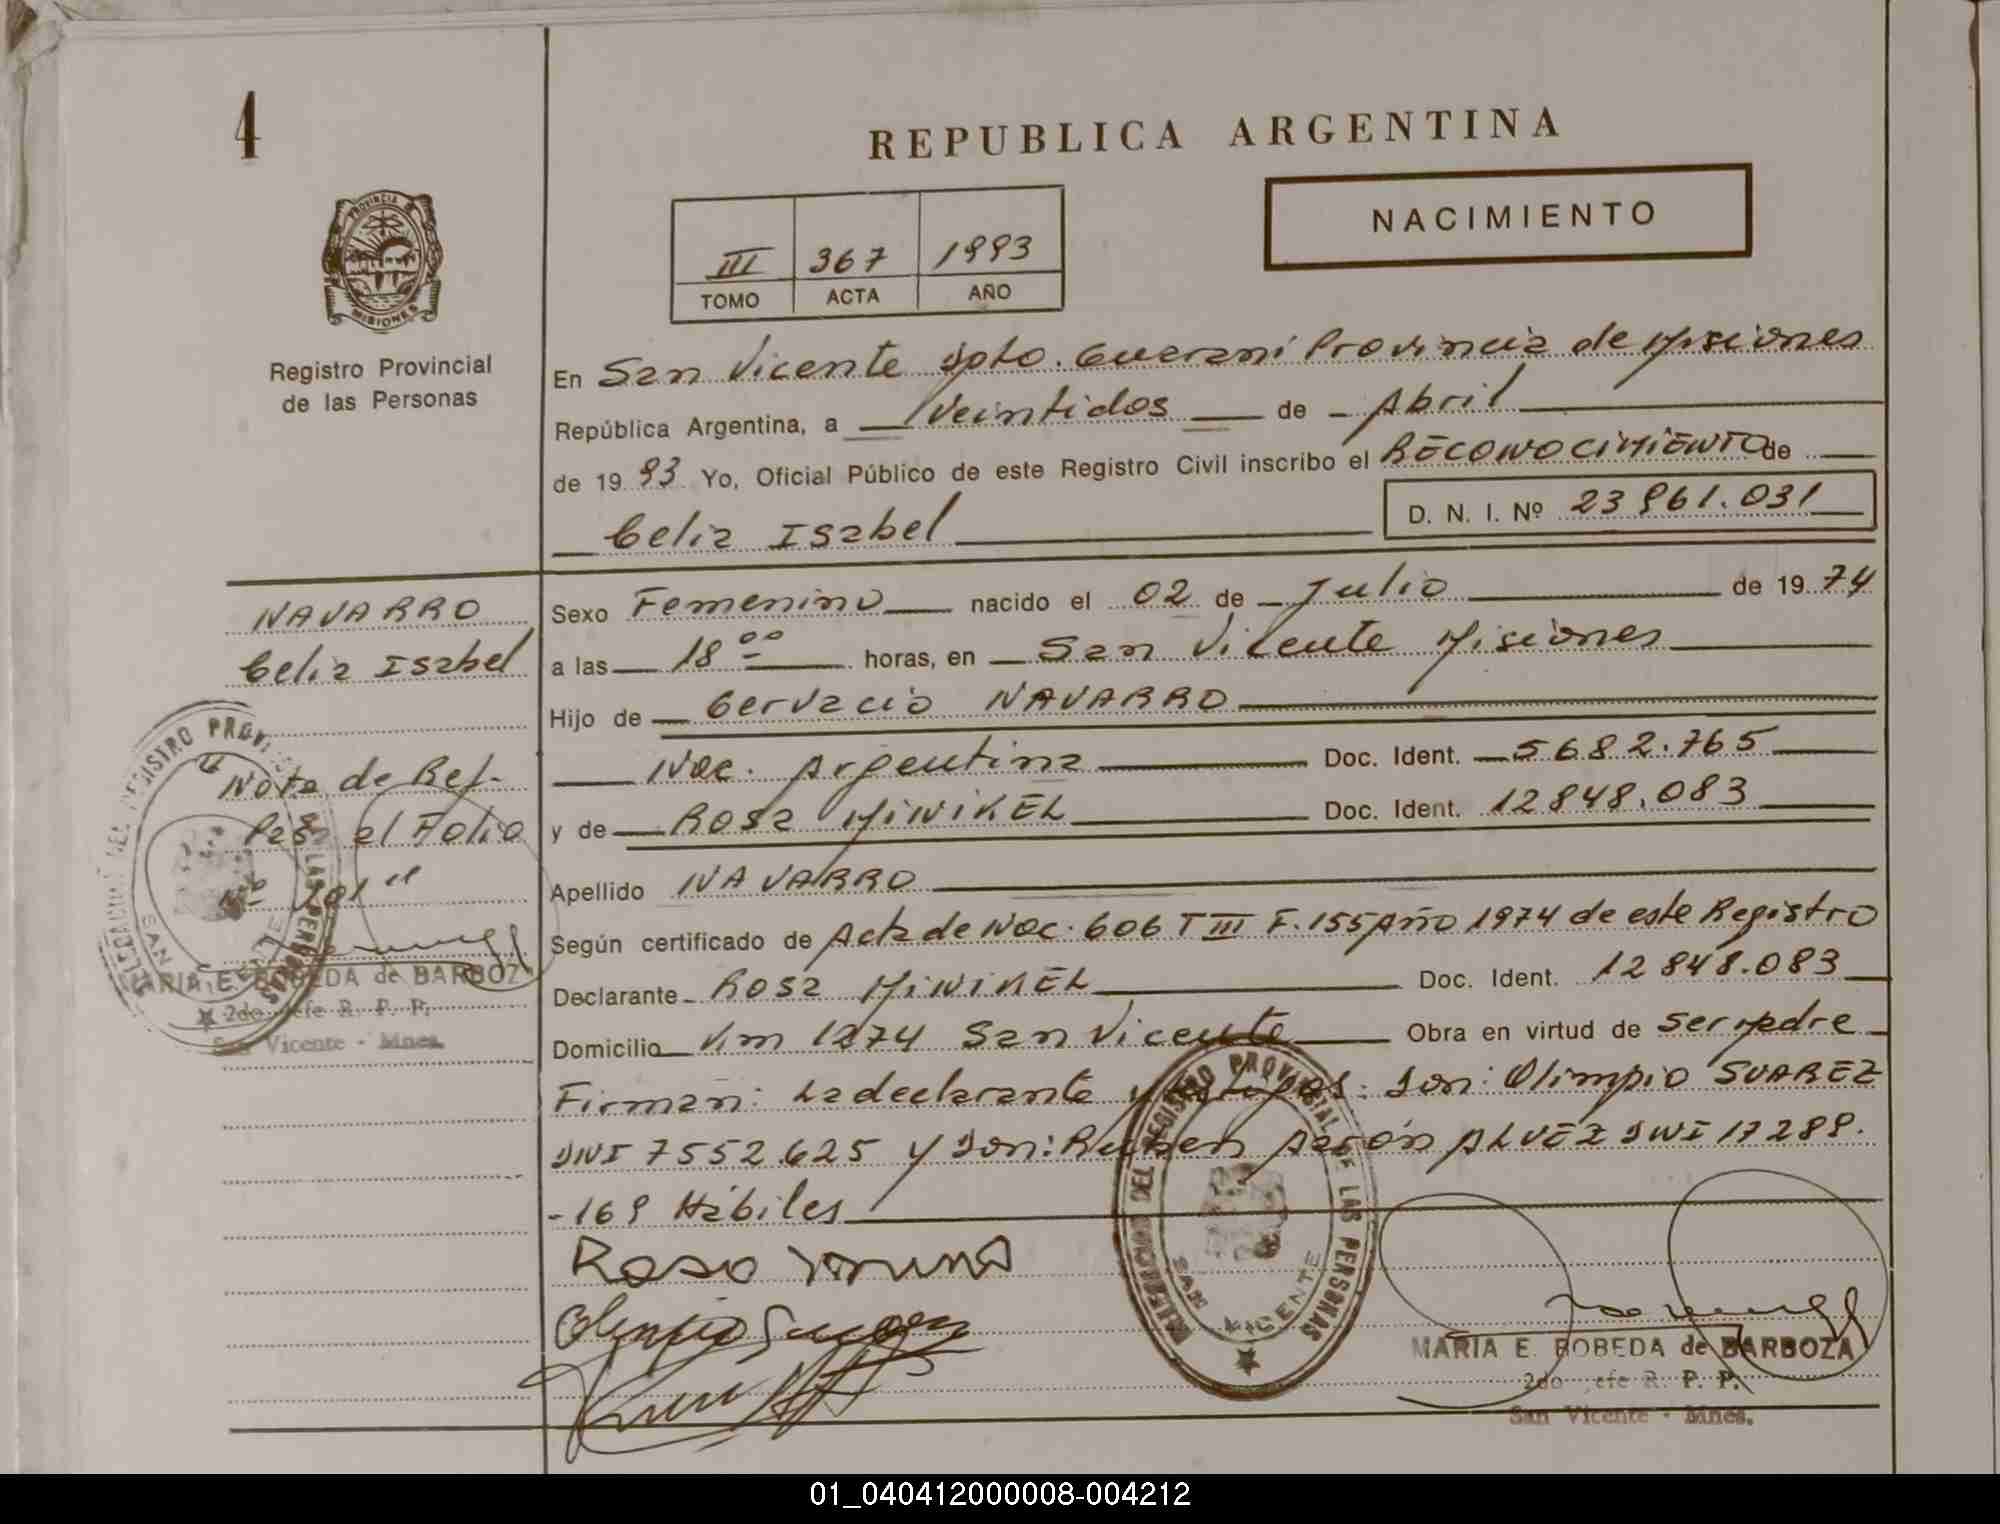 4
REPUBLICA ARGENTINA
PROVINCIA D MISIONES
NACIMIENTO
III 367 1993
TOMO ACTA AÑO
Registro Provincial
de las Personas
En San Vicente Dpto. Guaraní Provincia de Misiones
República Argentina, a Veintidos de Abril
de 1993 Yo, Oficial Público de este Registro Civil inscribo el RECONOCIMIENTO de
Celia Isabel D. N. I. Nº 23961.031
NAVARRO
Celia Isabel
Sexo Femenino nacido el 02 de Julio de 1974
a las 18 ºº horas, en San Vicente Misiones
Hijo de Cervacio NAVARRO
Nac. Argentina Doc. Ident. 5682.765
y de Rosa MINIKEL Doc. Ident. 12848.083
Apellido NAVARRO
Según certificado de Acta de Nac. 606 T III F. 155 Año 1974 de este Registro
Declarante Rosa MINIKEL Doc. Ident. 12848.083
Domicilio Km 1274 San Vicente Obra en virtud de ser Madre
Firman: La declarante y testigos: Don: Olimpio SUAREZ
DNI 7552.625 y Don: Ruben Aarón ALVEZ DNI 17289.
-169 Hábiles
"Nota de Ref.
Pasa al Folio
Nº 201"
MARIA E. BOBEDA de BARBOZA
2do Jefe R. P. P.
San Vicente - Mnes.
DELEGACION DEL REGISTRO PROVINCIAL DE LAS PERSONAS
SAN VICENTE
Rosa
Olimpio Suarez
DEL REGISTRO PROVINCIAL DE LAS PERSONAS
SAN VICENTE
MARIA E. BOBEDA de BARBOZA
2do Jefe R. P. P.
San Vicente - Mnes.
01_040412000008-004212